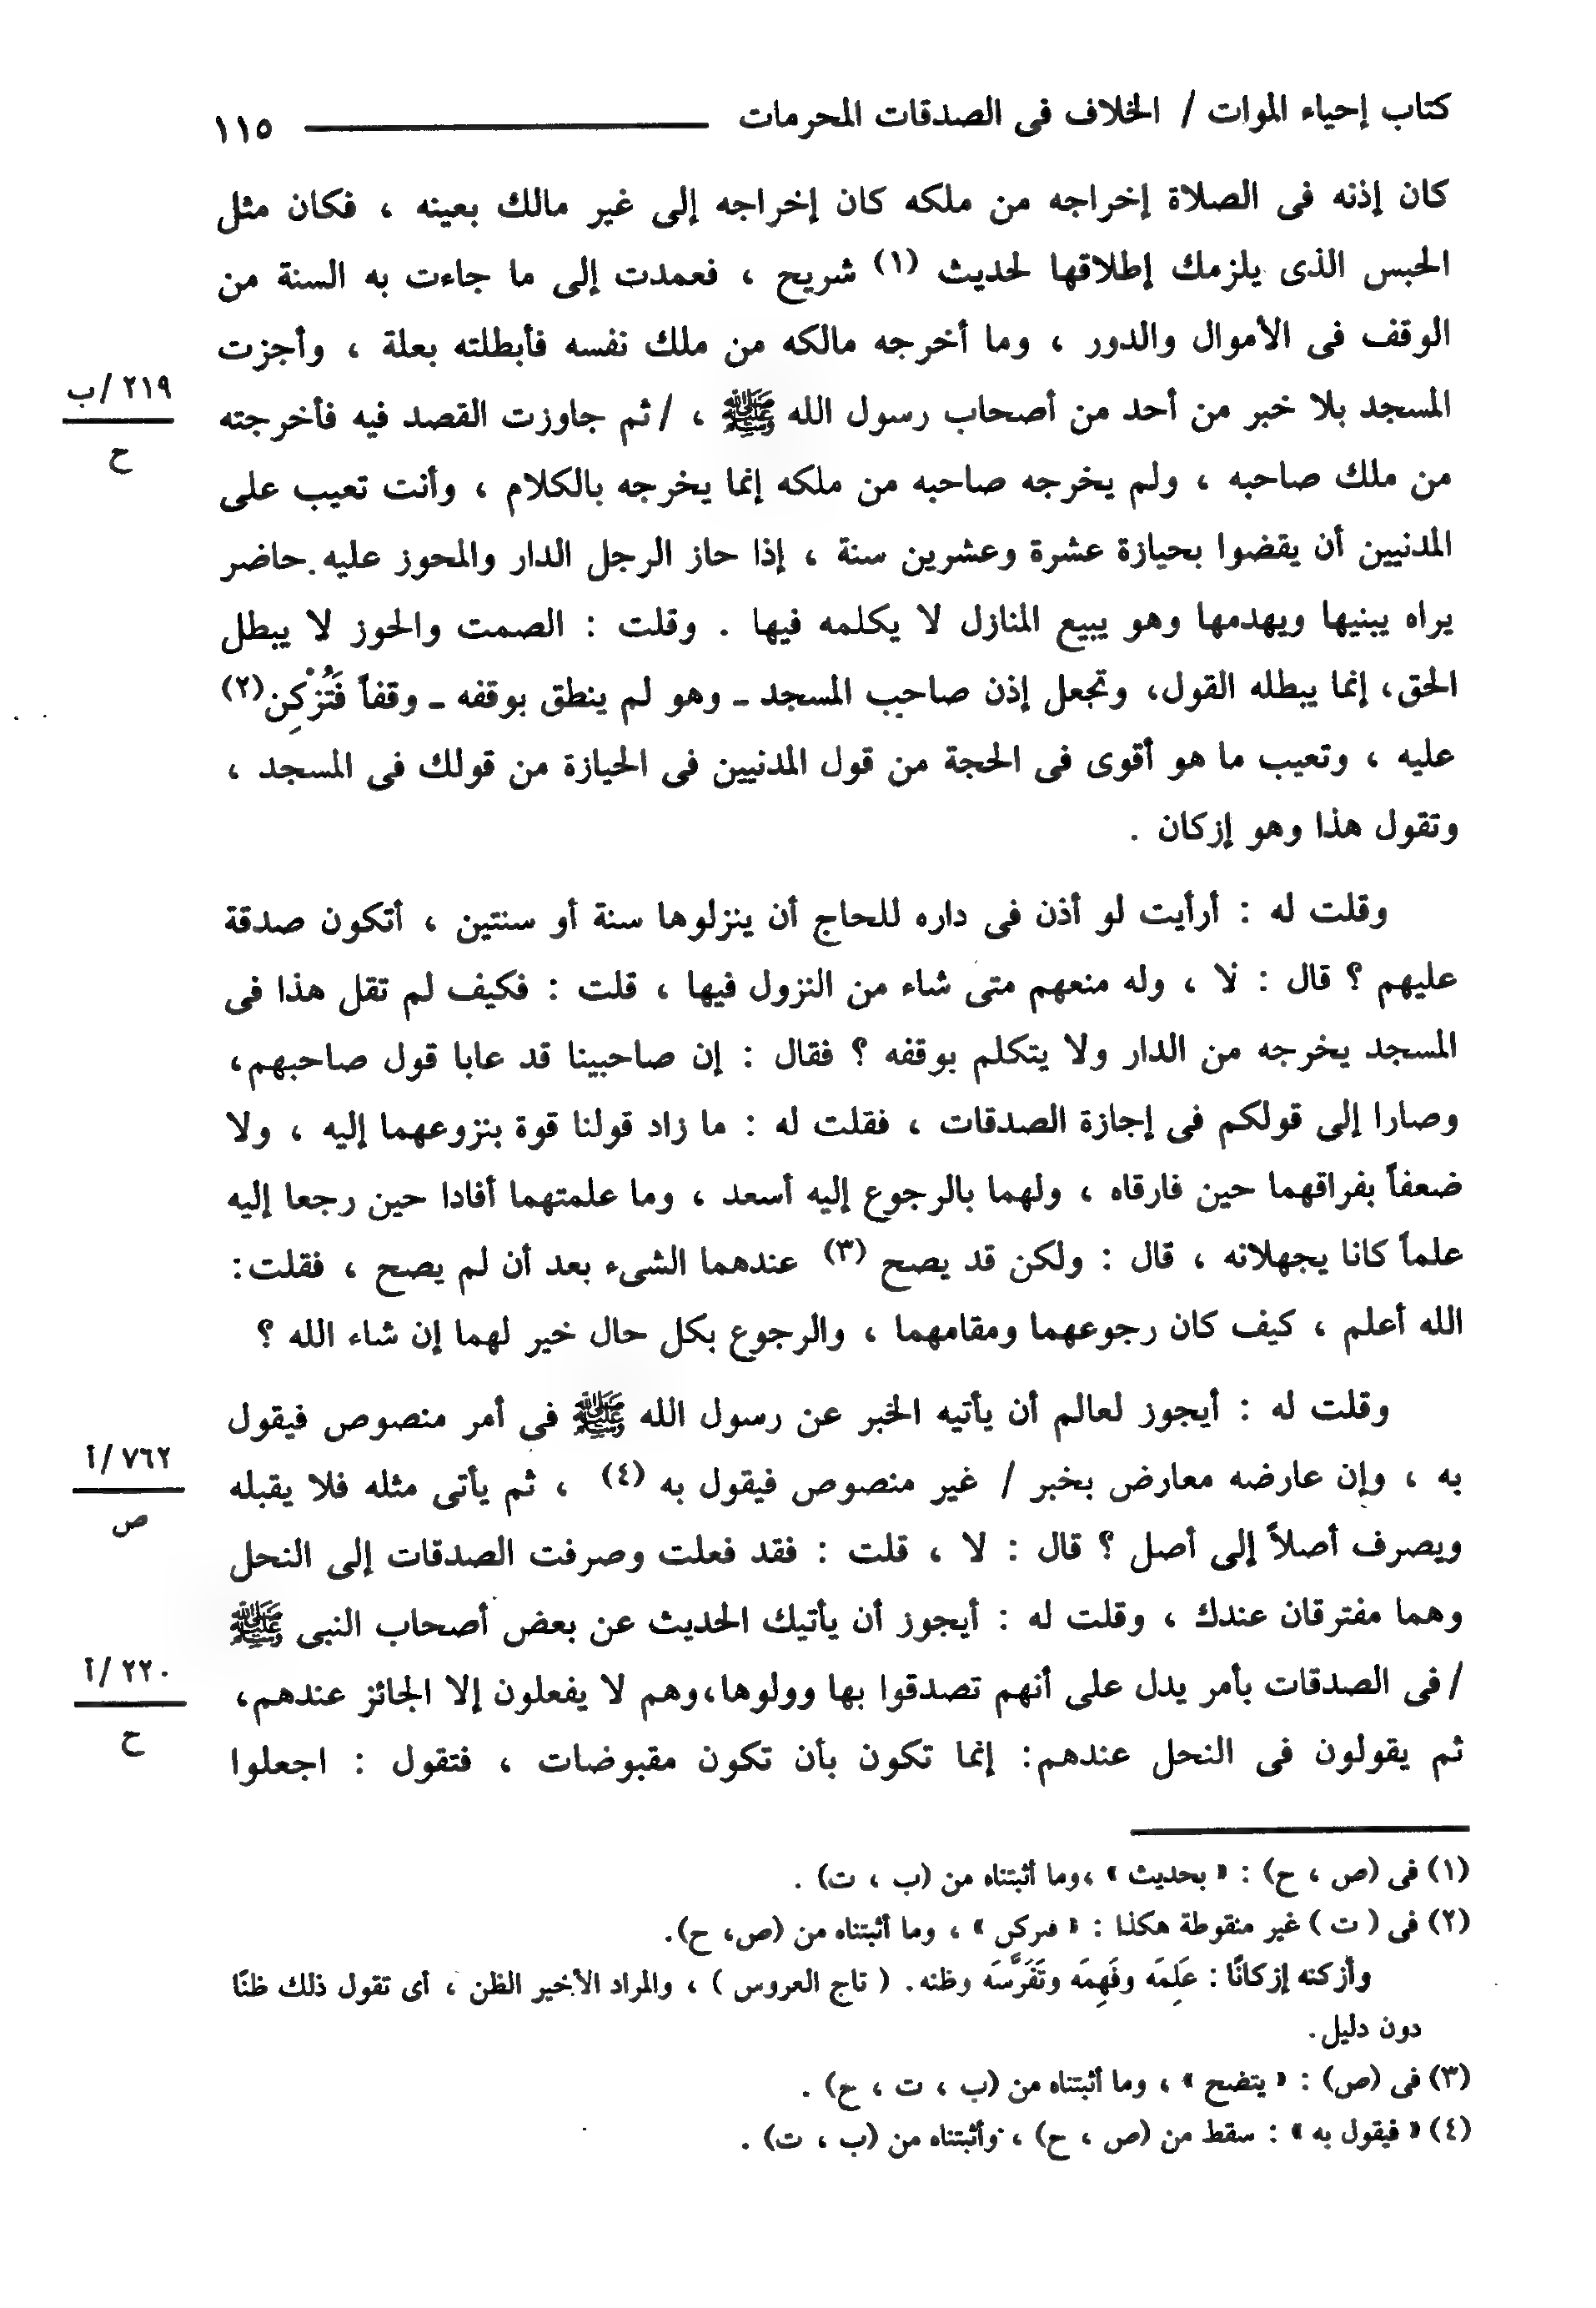 كتاب إحياء الموات / الخلاف فى الصدقات المحرمات ــــــــــــــ ١١٥
كان إذنه فى الصلاة إخراجه من ملكه كان إخراجه إلى غير مالك بعينه ، فكان مثل
الحبس الذى يلزمك إطلاقها لحديث (١) شريح ، فعمدت إلى ما جاءت به السنة من
الوقف فى الأموال والدور ، وما أخرجه مالكه من ملك نفسه فأبطلته بعلة ، وأجزت
المسجد بلا خبر من أحد من أصحاب رسول الله ﷺ ، / ثم جاوزت القصد فيه فأخرجته
٢١٩/ب
ح
من ملك صاحبه ، ولم يخرجه صاحبه من ملكه إنما يخرجه بالكلام ، وأنت تعيب على
المدنيين أن يقضوا بحيازة عشرة وعشرين سنة ، إذا حاز الرجل الدار والمحوز عليه حاضر
يراه يبنيها ويهدمها وهو يبيع المنازل لا يكلمه فيها . وقلت : الصمت والحوز لا يبطل
الحق، إنما يبطله القول، وتجعل إذن صاحب المسجد ـ وهو لم ينطق بوقفه ـ وقفاً فَتُزْكِن(٢)
عليه ، وتعيب ما هو أقوى فى الحجة من قول المدنيين فى الحيازة من قولك فى المسجد ،
وتقول هذا وهو إزكان .
وقلت له : أرأيت لو أذن فى داره للحاج أن ينزلوها سنة أو سنتين ، أتكون صدقة
عليهم ؟ قال : لا ، وله منعهم متى شاء من النزول فيها ، قلت : فكيف لم تقل هذا فى
المسجد يخرجه من الدار ولا يتكلم بوقفه ؟ فقال : إن صاحبينا قد عابا قول صاحبهم،
وصارا إلى قولكم فى إجازة الصدقات ، فقلت له : ما زاد قولنا قوة بنزوعهما إليه ، ولا
ضعفاً بفراقهما حين فارقاه ، ولهما بالرجوع إليه أسعد ، وما علمتهما أفادا حين رجعا إليه
علماً كانا يجهلانه ، قال : ولكن قد يصح (٣) عندهما الشىء بعد أن لم يصح ، فقلت:
الله أعلم ، كيف كان رجوعهما ومقامهما ، والرجوع بكل حال خير لهما إن شاء الله ؟
وقلت له : أيجوز لعالم أن يأتيه الخبر عن رسول الله ﷺ فى أمر منصوص فيقول
به ، وإن عارضه معارض بخبر / غير منصوص فيقول به (٤) ، ثم يأتى مثله فلا يقبله
٧٦٢/أ
ص
ويصرف أصلاً إلى أصل ؟ قال : لا ، قلت : فقد فعلت وصرفت الصدقات إلى النحل
وهما مفترقان عندك ، وقلت له : أيجوز أن يأتيك الحديث عن بعض أصحاب النبى ﷺ
/ فى الصدقات بأمر يدل على أنهم تصدقوا بها وولوها،وهم لا يفعلون إلا الجائز عندهم،
٢٢٠/أ
ح
ثم يقولون فى النحل عندهم: إنما تكون بأن تكون مقبوضات ، فتقول : اجعلوا
(١) فى (ص ، ح) : « بحديث » ،وما أثبتناه من (ب ، ت) .
(٢) فى ( ت ) غير منقوطة هكذا : « ڡىركں » ، وما أثبتناه من (ص، ح).
وأزكنه إزكانًا : عَلِمَه وفَهِمَه وتَفَرَّسَه وظنه. ( تاج العروس ) ، والمراد الأخير الظن ، أى تقول ذلك ظنًا
دون دليل.
(٣) فى (ص) : « يتضح » ، وما أثبتناه من (ب ، ت ، ح) .
(٤) « فيقول به » : سقط من (ص ، ح) ، وأثبتناه من (ب ، ت) .